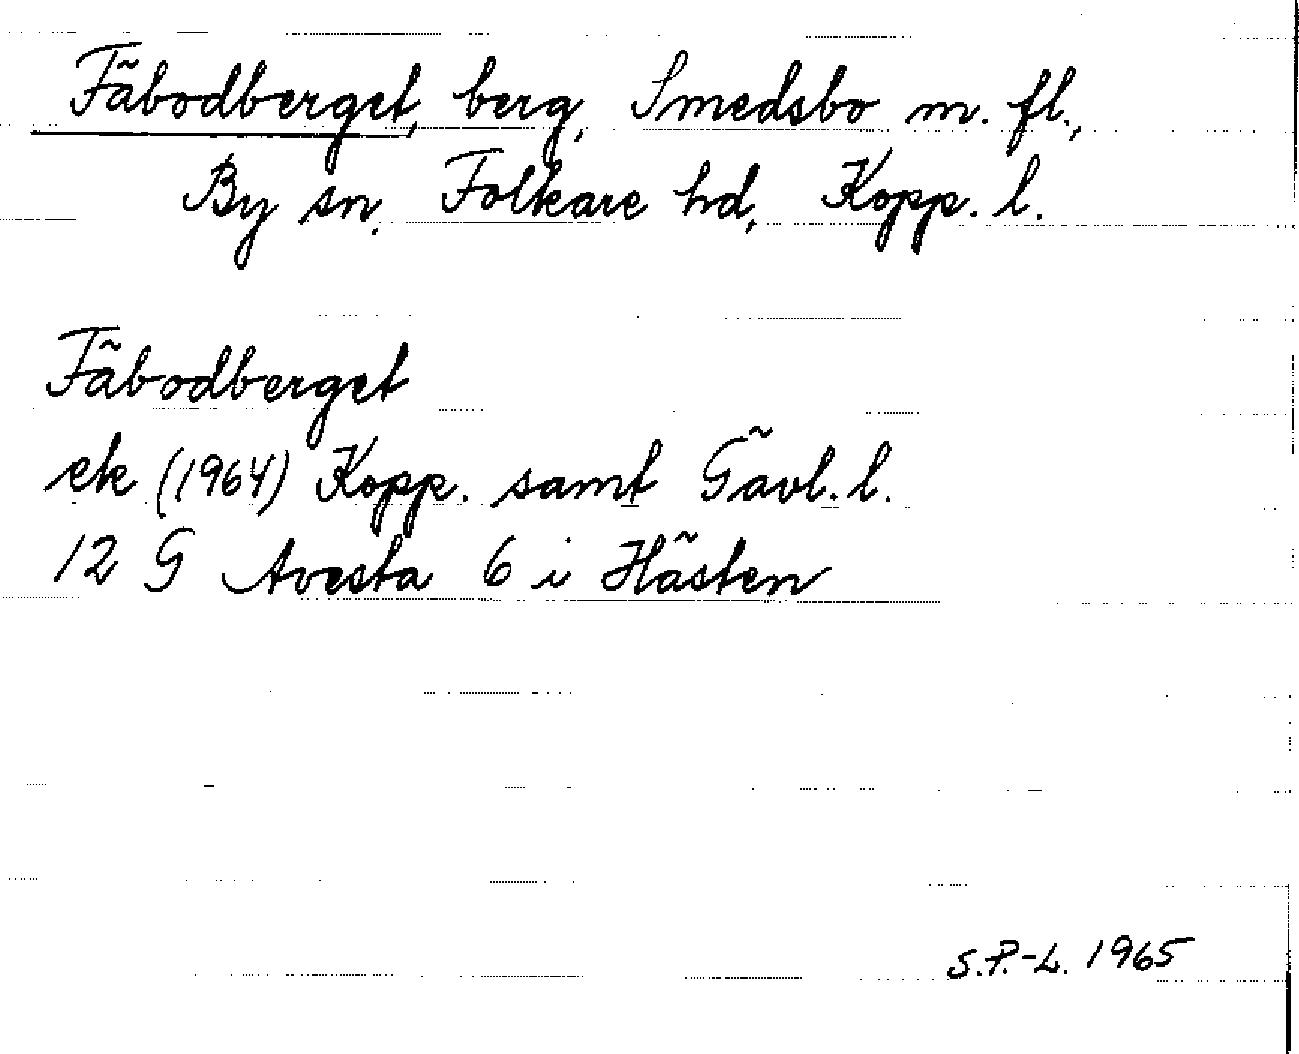 Fäbodberget, berg, Smedsbo m. fl.,
By sn, Folkare hd, Kopp. l.
Fäbodberget
ek (1964) Kopp. samt Gävl. l.
12 G Avesta 6 i Hästen
S.P.-L. 1965